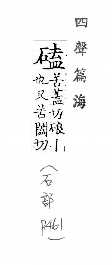 四聲篇海
磕
苦蓋切硠〻
也又苦闔切
(石部
P461)